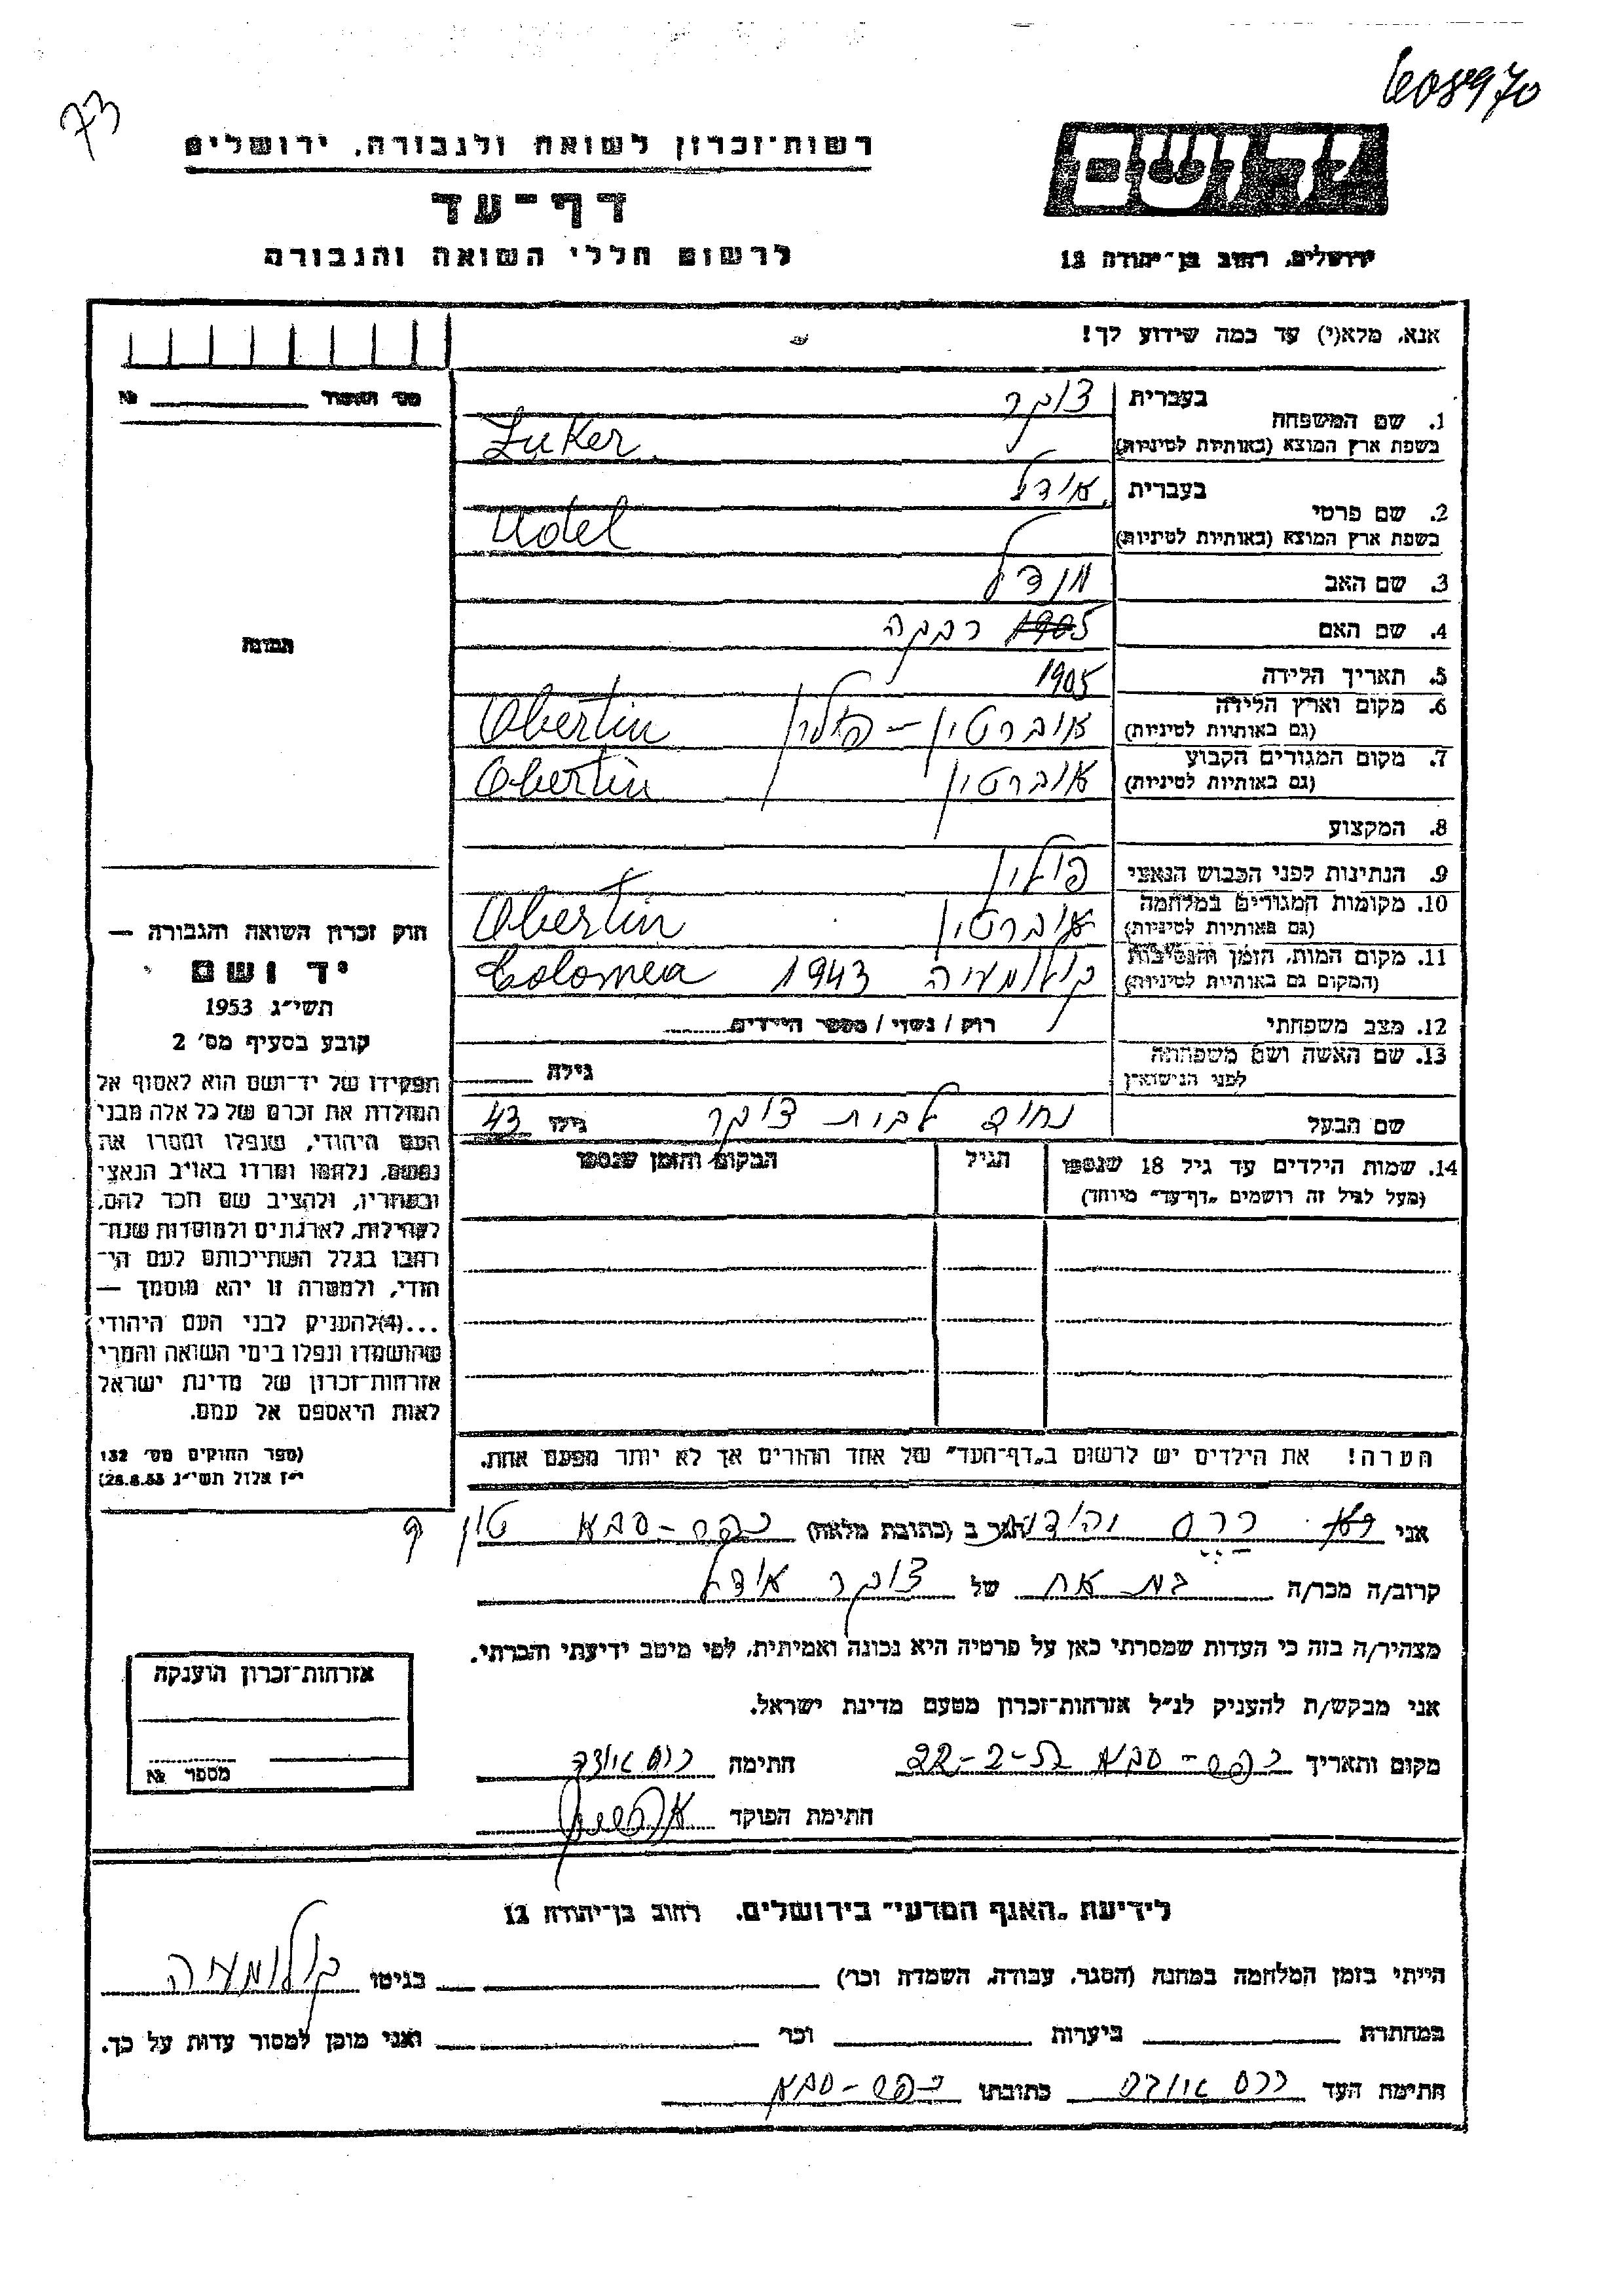 608970
73
רשות־זכרון לשואה ולגבורה, ירושלים
יד ושם
דף־עד
לרשום חללי השואה והגבורה
ירושלים, רחוב בן־יהודה 12
אנא, מלא(י) עד כמה שידוע לך!
מס׳ №
1. שם המשפחה בעברית צוקר
בשפת ארץ המוצא (באותיות לטיניות) Zuker
2. שם פרטי בעברית אודל
בשפת ארץ המוצא (באותיות לטיניות) Udel
3. שם האב מנדל
4. שם האם 1905 רבקה
5. תאריך הלידה 1905
6. מקום וארץ הלידה (גם באותיות לטיניות) אוברטין – פולין Obertin
7. מקום המגורים הקבוע (גם באותיות לטיניות) אוברטין Obertin
8. המקצוע
9. הנתינות לפני הכבוש הנאצי פולין
10. מקומות המגורים במלחמה (גם באותיות לטיניות) אוברטין Obertin
11. מקום המות, הזמן והנסיבות (המקום גם באותיות לטיניות) קולומיה 1943 Colomea
12. מצב משפחתי רוק / נשוי / מספר הילדים
13. שם האשה ושם משפחתה לפני הנישואין גילה
שם הבעל נחום לבית צוקר גילו 43
14. שמות הילדים עד גיל 18 שנספו (מעל לגיל זה רושמים „דף־עד״ מיוחד) הגיל המקום והזמן שנספו
הערה! את הילדים יש לרשום ב„דף־העד״ של אחד ההורים אך לא יותר מפעם אחת.
תמונה
חוק זכרון השואה והגבורה —
יד ושם
תשי״ג 1953
קובע בסעיף מס׳ 2
תפקידו של יד־ושם הוא לאסוף אל
המולדת את זכרם של כל אלה מבני
העם היהודי, שנפלו ומסרו את
נפשם, נלחמו ומרדו באויב הנאצי
ובעוזריו, ולהציב שם וזכר להם,
לקהילות, לארגונים ולמוסדות שנח־
רבו בגלל השתייכותם לעם הי־
הודי, ולמטרה זו יהא מוסמך —
...(4)להעניק לבני העם היהודי
שהושמדו ונפלו בימי השואה והמרי
אזרחות־זכרון של מדינת ישראל
לאות היאספם אל עמם.
(ספר החוקים מס׳ 132
י״ז אלול תשי״ג 28.8.53)
אני כרם הגר ב (כתובת מלאה) כפר-סבא
קרוב/ה מכר/ה בת אח של צוקר אודל
מצהיר/ה בזה כי העדות שמסרתי כאן על פרטיה היא נכונה ואמיתית, לפי מיטב ידיעתי והכרתי.
אני מבקש/ת להעניק לנ״ל אזרחות־זכרון מטעם מדינת ישראל.
מקום ותאריך כפר-סבא חתימה כרם
חתימת הפוקד
אזרחות־זכרון הוענקה
מספר №
לידיעת „האגף המדעי״ בירושלים, רחוב בן־יהודה 12
הייתי בזמן המלחמה במחנה (הסגר, עבודה, השמדה וכר׳) בגיטו קולומיה
במחתרת ביערות וכר׳ ואני מוכן למסור עדות על כך.
חתימת העד כרם כתובתו כפר-סבא